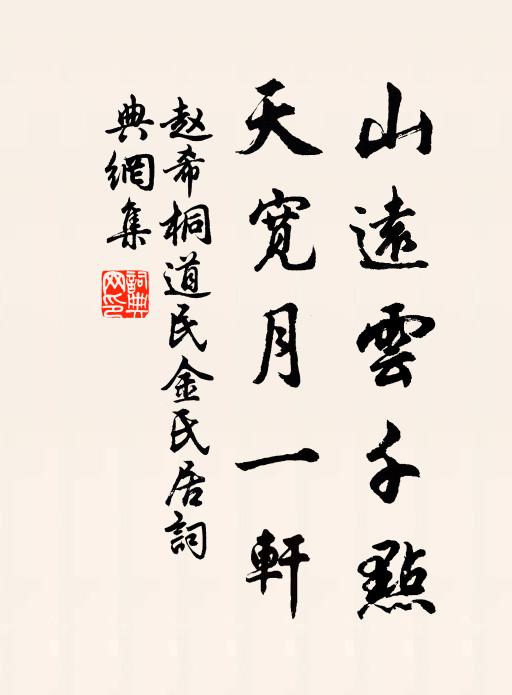 山遠雲千點
天寬月一軒
赵希桐道民金民居詞
典網集
詞典
网印